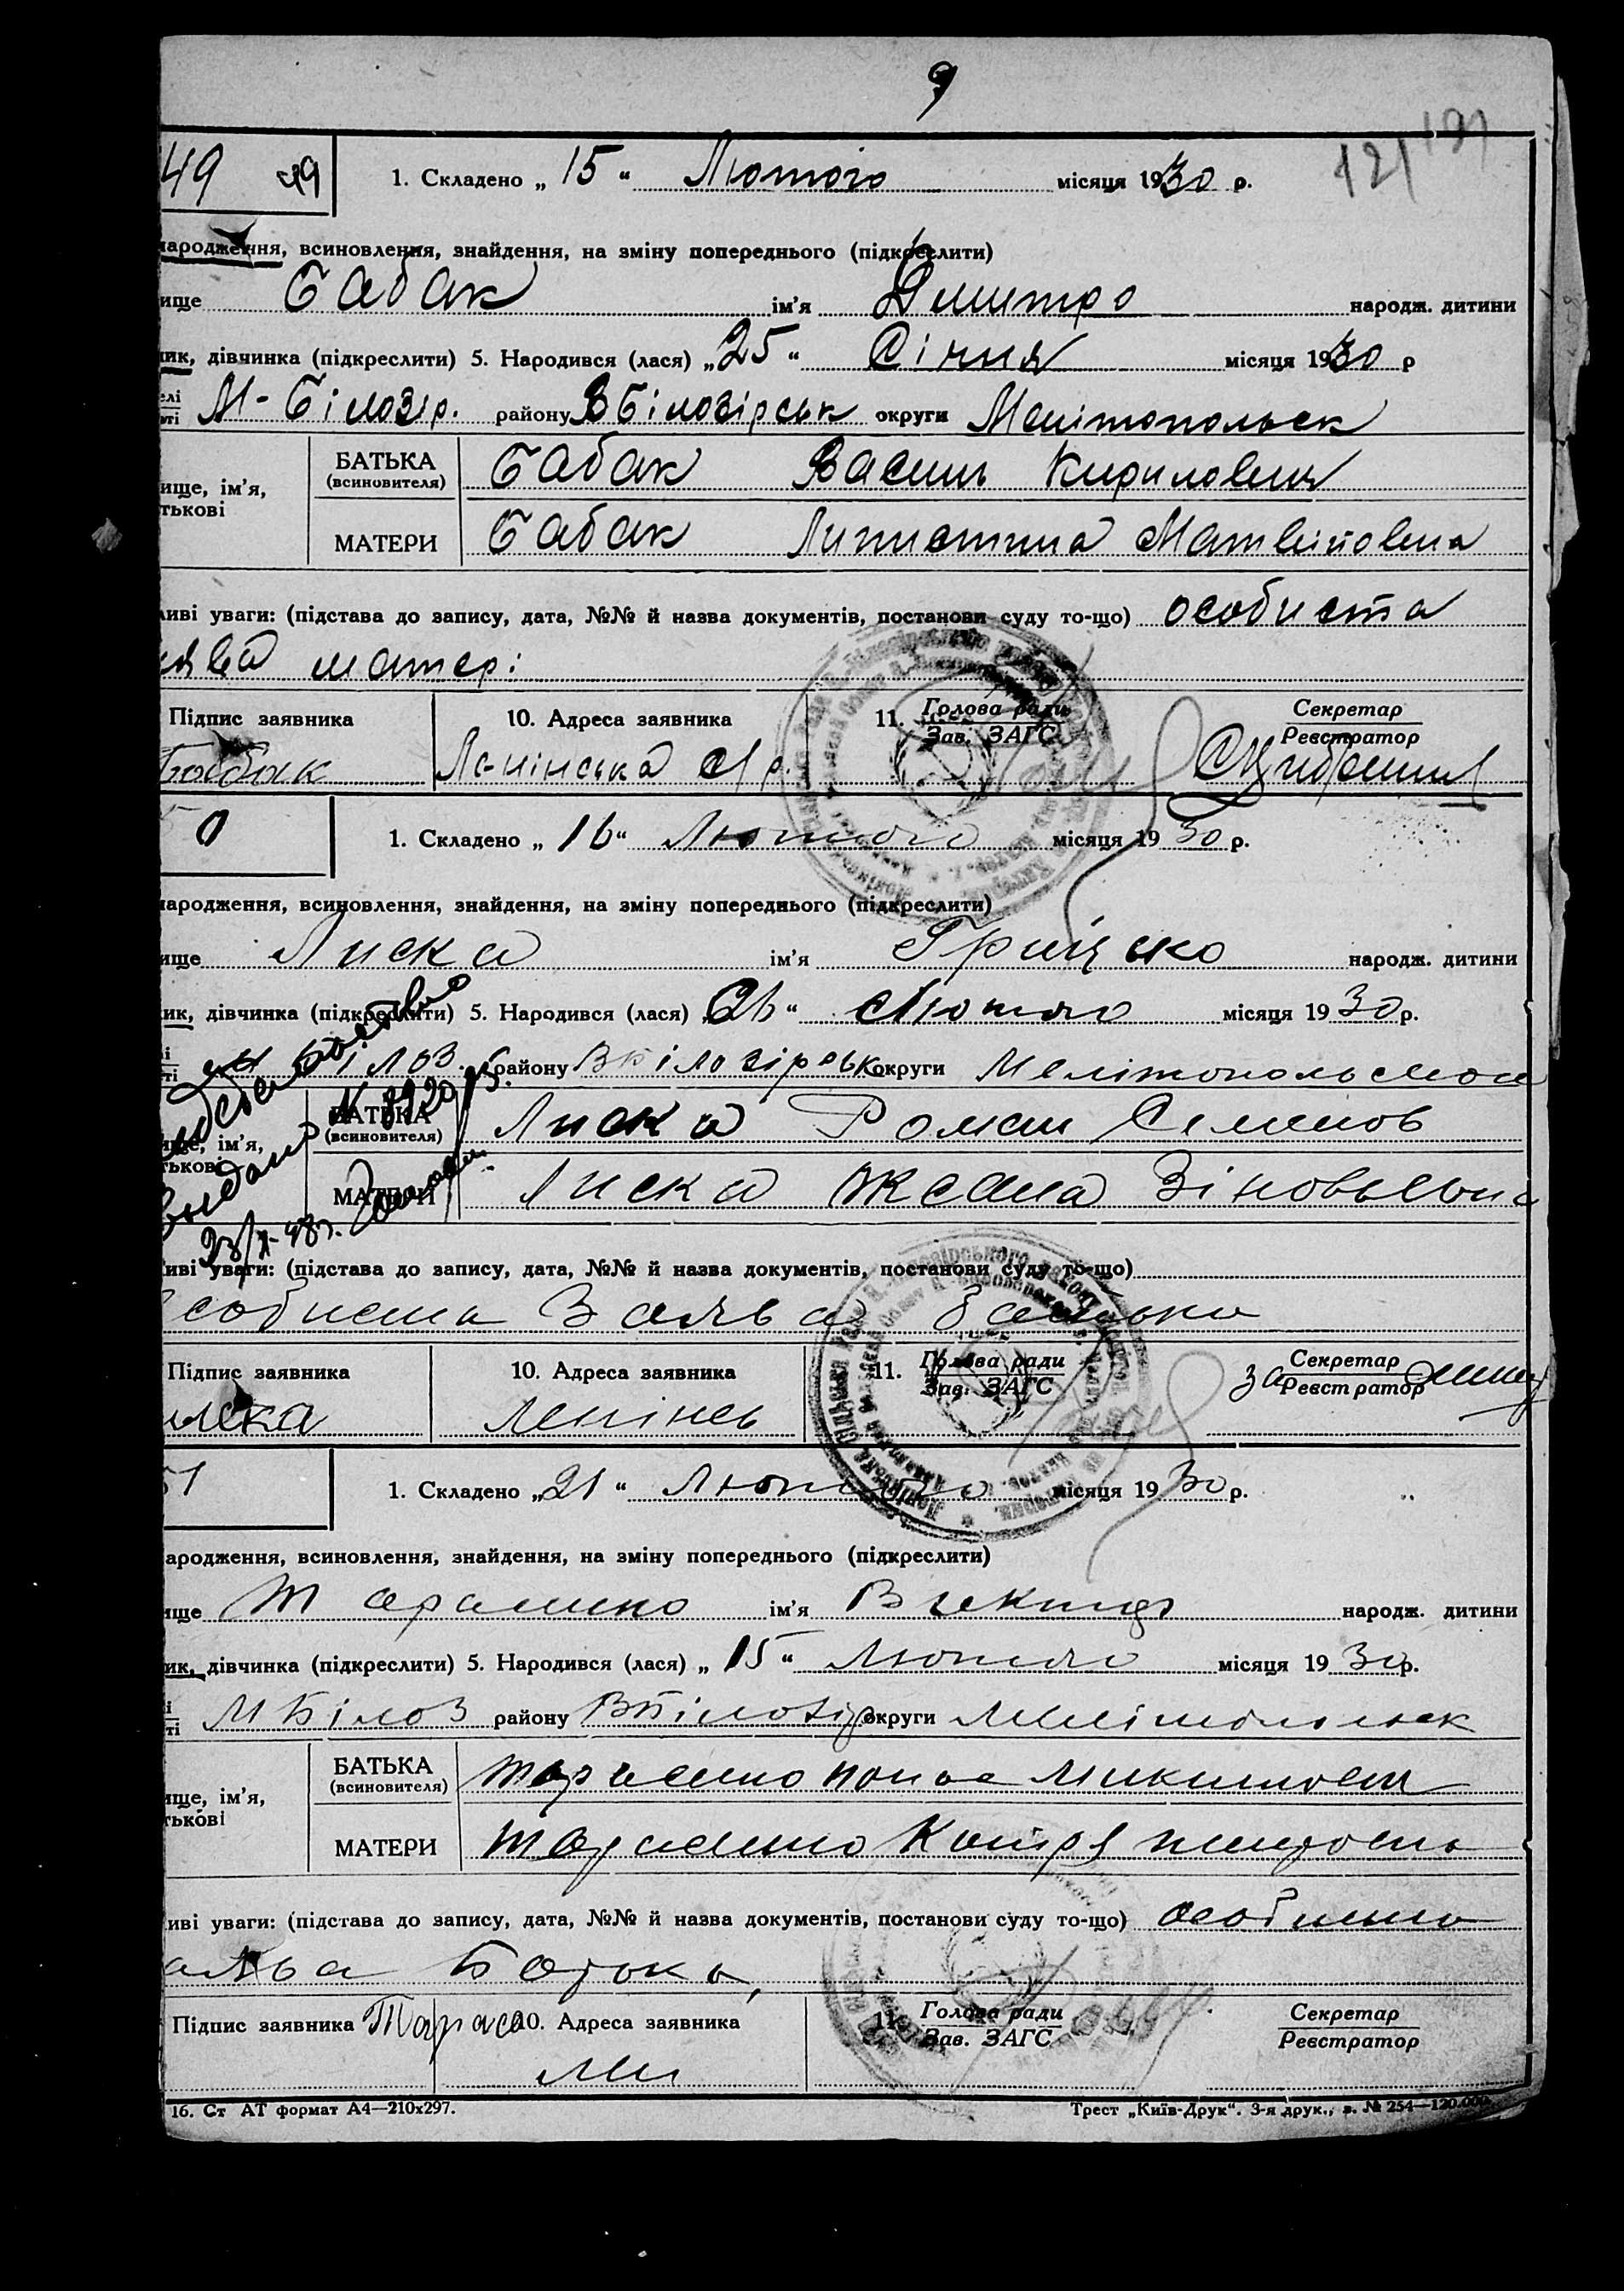 9
121 191
49 49
1. Складено „ 15 “ Лютого місяця 1930 р.
народження, всиновлення, знайдення, на зміну попереднього (підкреслити)
ище Бабак ім’я Дмитро народж. дитини
ик, дівчинка (підкреслити) 5. Народився (лася) „ 25 “ Січня місяця 1930 р
елі М-Білозір. району ВБілозірськ округи Мелітопольск
ище, ім’я,
тькові
БАТЬКА
(всиновителя)
Бабак Василь Кирилович
МАТЕРИ Бабак Матвіївна
ливі уваги: (підстава до запису, дата, №№ й назва документів, постанови суду то-що) особиста
ява матері
Підпис заявника 10. Адреса заявника 11. Голова ради
Зав. ЗАГС
Секретар
Реєстратор
Бабак Ленінська
50
1. Складено „ 16 “ Лютого місяця 1930 р.
народження, всиновлення, знайдення, на зміну попереднього (підкреслити)
ище Лиска ім’я Грицько народж. дитини
ик, дівчинка (підкреслити) 5. Народився (лася) „ “ Лютого місяця 1930 р.
ілоз. району ВБілозірськ округи Мелітопольской
ище, ім’я,
тькові
БАТЬКА
(всиновителя)
Лиска Роман Семенов
МАТЕРИ Лиска Оксана Зіновьевна
Выдано
23/X-48г.
иві уваги: (підстава до запису, дата, №№ й назва документів, постанови суду то-що)
собиста Заява батька
Підпис заявника 10. Адреса заявника 11. Голова ради
Зав. ЗАГС
за Секретар
Реєстратор
иска Ленінсь
51
1. Складено „ 21 “ Лютого місяця 1930 р.
ародження, всиновлення, знайдення, на зміну попереднього (підкреслити)
ище Тараненко ім’я Віктор народж. дитини
ик, дівчинка (підкреслити) 5. Народився (лася) „ 15 “ Лютого місяця 1930 р.
МБілоз району ВБілозір округи Мелітопольск
ище, ім’я,
тькові
БАТЬКА
(всиновителя)
Тараненко Микитович
МАТЕРИ Тараненко Катря
иві уваги: (підстава до запису, дата, №№ й назва документів, постанови суду то-що) особиста
аява Батька
Підпис заявника Таран 10. Адреса заявника 11. Голова ради
Зав. ЗАГС
Секретар
Реєстратор
16. Ст АТ формат А4—210х297.
Трест „Київ-Друк“. 3-я друк., з. № 254—120.000